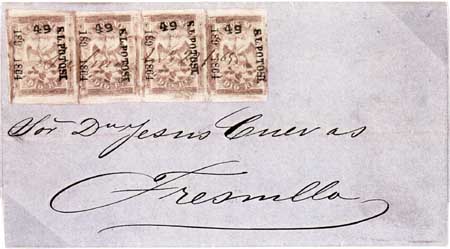 49 49 49 49
189 1864 189 1864 189 1864 189 1864
S.L.POTOSI S.L.POTOSI S.L.POTOSI S.L.POTOSI
Sor Dn Jesus Cuevas
Fresnillo